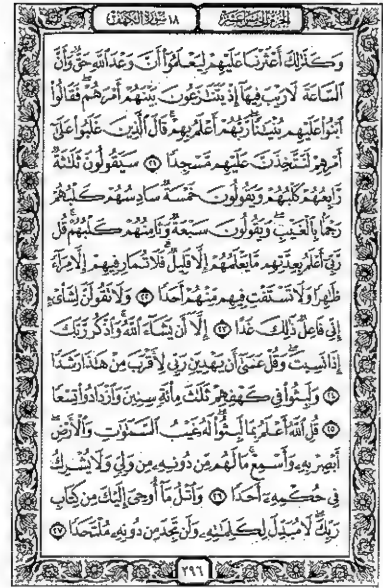 الجزء الخامس عشر
١٨ سورة الكهف
وَكَذَٰلِكَ أَعْثَرْنَا عَلَيْهِمْ لِيَعْلَمُوا أَنَّ وَعْدَ اللَّهِ حَقٌّ وَأَنَّ
السَّاعَةَ لَا رَيْبَ فِيهَا إِذْ يَتَنَازَعُونَ بَيْنَهُمْ أَمْرَهُمْ فَقَالُوا
ابْنُوا عَلَيْهِم بُنْيَانًا رَّبُّهُمْ أَعْلَمُ بِهِمْ قَالَ الَّذِينَ غَلَبُوا عَلَىٰ
أَمْرِهِمْ لَنَتَّخِذَنَّ عَلَيْهِم مَّسْجِدًا ٢١ سَيَقُولُونَ ثَلَاثَةٌ
رَّابِعُهُمْ كَلْبُهُمْ وَيَقُولُونَ خَمْسَةٌ سَادِسُهُمْ كَلْبُهُمْ
رَجْمًا بِالْغَيْبِ وَيَقُولُونَ سَبْعَةٌ وَثَامِنُهُمْ كَلْبُهُمْ قُل
رَّبِّي أَعْلَمُ بِعِدَّتِهِم مَّا يَعْلَمُهُمْ إِلَّا قَلِيلٌ فَلَا تُمَارِ فِيهِمْ إِلَّا مِرَاءً
ظَاهِرًا وَلَا تَسْتَفْتِ فِيهِم مِّنْهُمْ أَحَدًا ٢٢ وَلَا تَقُولَنَّ لِشَايْءٍ
إِنِّي فَاعِلٌ ذَٰلِكَ غَدًا ٢٣ إِلَّا أَن يَشَاءَ اللَّهُ وَاذْكُر رَّبَّكَ
إِذَا نَسِيتَ وَقُلْ عَسَىٰ أَن يَهْدِيَنِ رَبِّي لِأَقْرَبَ مِنْ هَٰذَا رَشَدًا
٢٤ وَلَبِثُوا فِي كَهْفِهِمْ ثَلَاثَ مِائَةٍ سِنِينَ وَازْدَادُوا تِسْعًا
٢٥ قُلِ اللَّهُ أَعْلَمُ بِمَا لَبِثُوا لَهُ غَيْبُ السَّمَاوَاتِ وَالْأَرْضِ
أَبْصِرْ بِهِ وَأَسْمِعْ مَا لَهُم مِّن دُونِهِ مِن وَلِيٍّ وَلَا يُشْرِكُ
فِي حُكْمِهِ أَحَدًا ٢٦ وَاتْلُ مَا أُوحِيَ إِلَيْكَ مِن كِتَابِ
رَبِّكَ لَا مُبَدِّلَ لِكَلِمَاتِهِ وَلَن تَجِدَ مِن دُونِهِ مُلْتَحَدًا ٢٧
٢٩٦